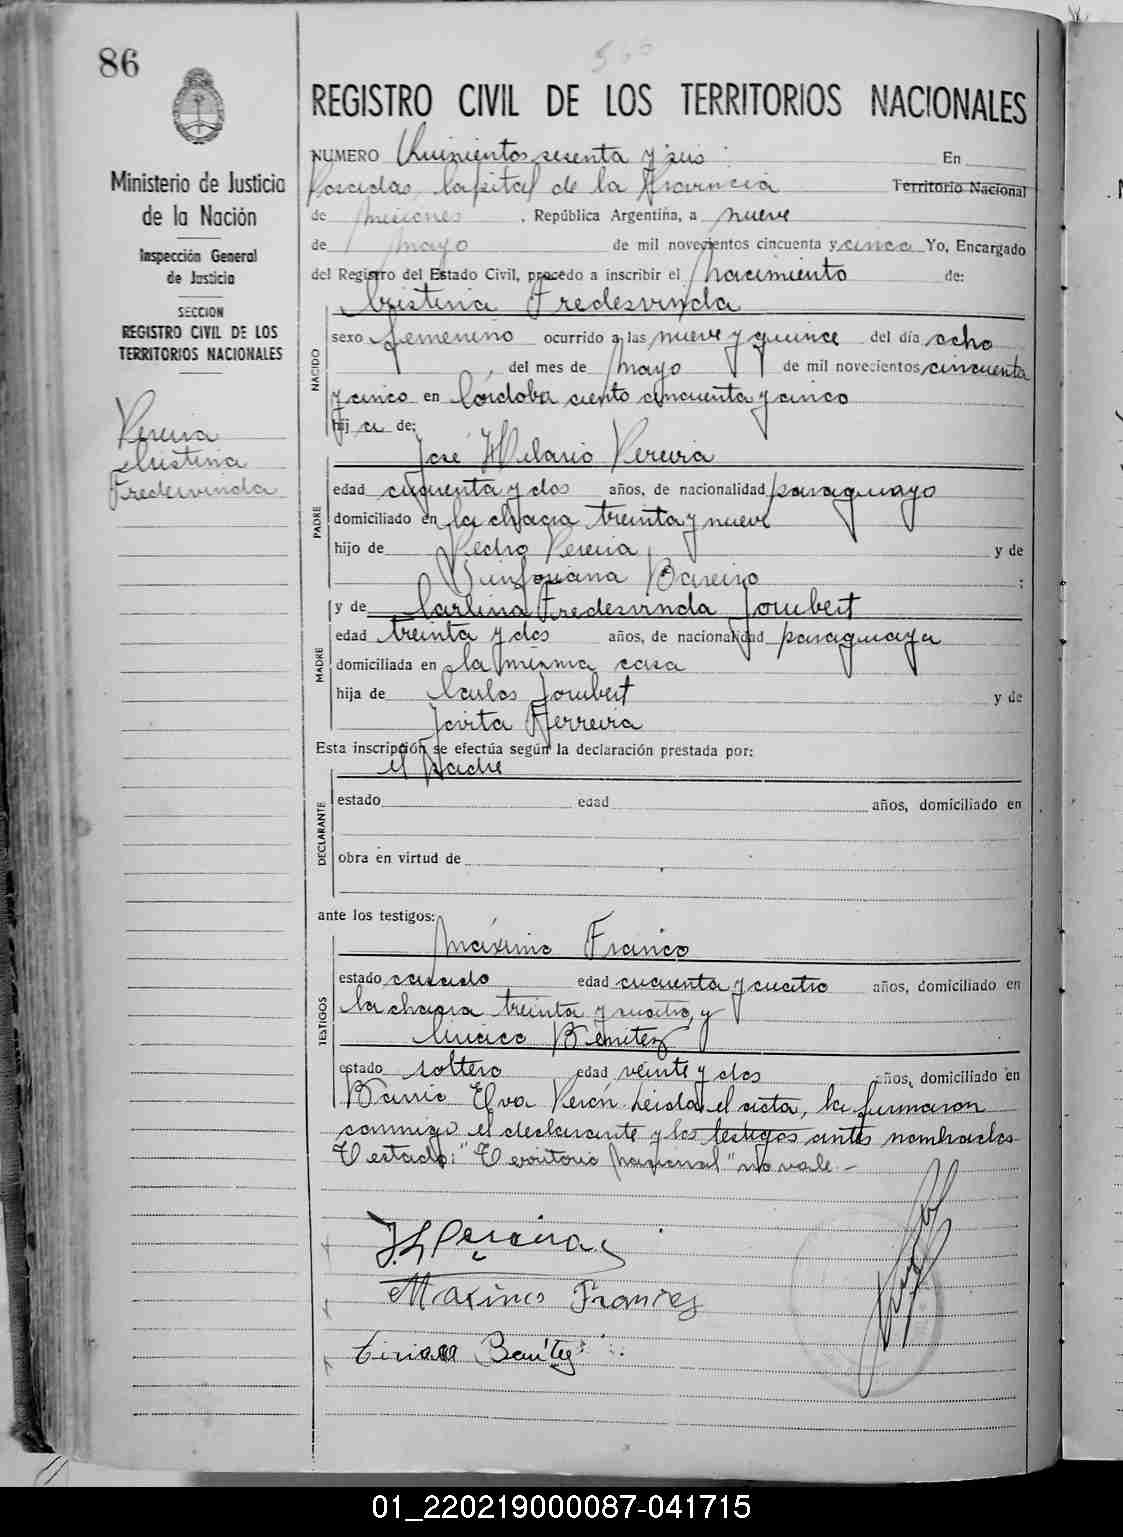 86
Ministerio de Justicia
de la Nación
Inspección General
de Justicia
SECCION
REGISTRO CIVIL DE LOS
TERRITORIOS NACIONALES
Pereira
Cristina
Fredesvinda
REGISTRO CIVIL DE LOS TERRITORIOS NACIONALES
NUMERO Quinientos sesenta y seis En
Posadas, Capital de la Provincia Territorio Nacional
de Misiones, República Argentina, a nueve
de Mayo de mil novecientos cincuenta y cinco Yo, Encargado
del Registro del Estado Civil, procedo a inscribir el Nacimiento de:
Cristina Fredesvinda
NACIDO
sexo femenino ocurrido a las nueve y quince del día ocho
del mes de Mayo de mil novecientos cincuenta
y cinco en Córdoba ciento cincuenta y cinco
hij a de:
José Hilario Pereira
PADRE
edad cuarenta y dos años, de nacionalidad paraguayo
domiciliado en la chacra treinta y nueve
hijo de Pedro Pereira y de
Sinforiana Bareiro :
y de Carlina Fredesvinda Joubert
MADRE
edad treinta y dos años, de nacionalidad paraguaya
domiciliada en la misma casa
hija de Carlos Joubert y de
Jovita Ferreira
Esta inscripción se efectúa según la declaración prestada por:
el padre
DECLARANTE
estado edad años, domiciliado en
obra en virtud de
ante los testigos:
Máximo Franco
TESTIGOS
estado casado edad cuarenta y cuatro años, domiciliado en
la chacra treinta y cuatro, y
Ciriaco Benitez
estado soltero edad veinte y dos años, domiciliado en
Barrio Eva Perón. Leida el acta, la firmaron
conmigo el declarante y los testigos antes nombrados
Testado: "Territorio Nacional" no vale.-
J. H. Pereira
Maximo Franco
Ciriaco Benítez
01_220219000087-041715